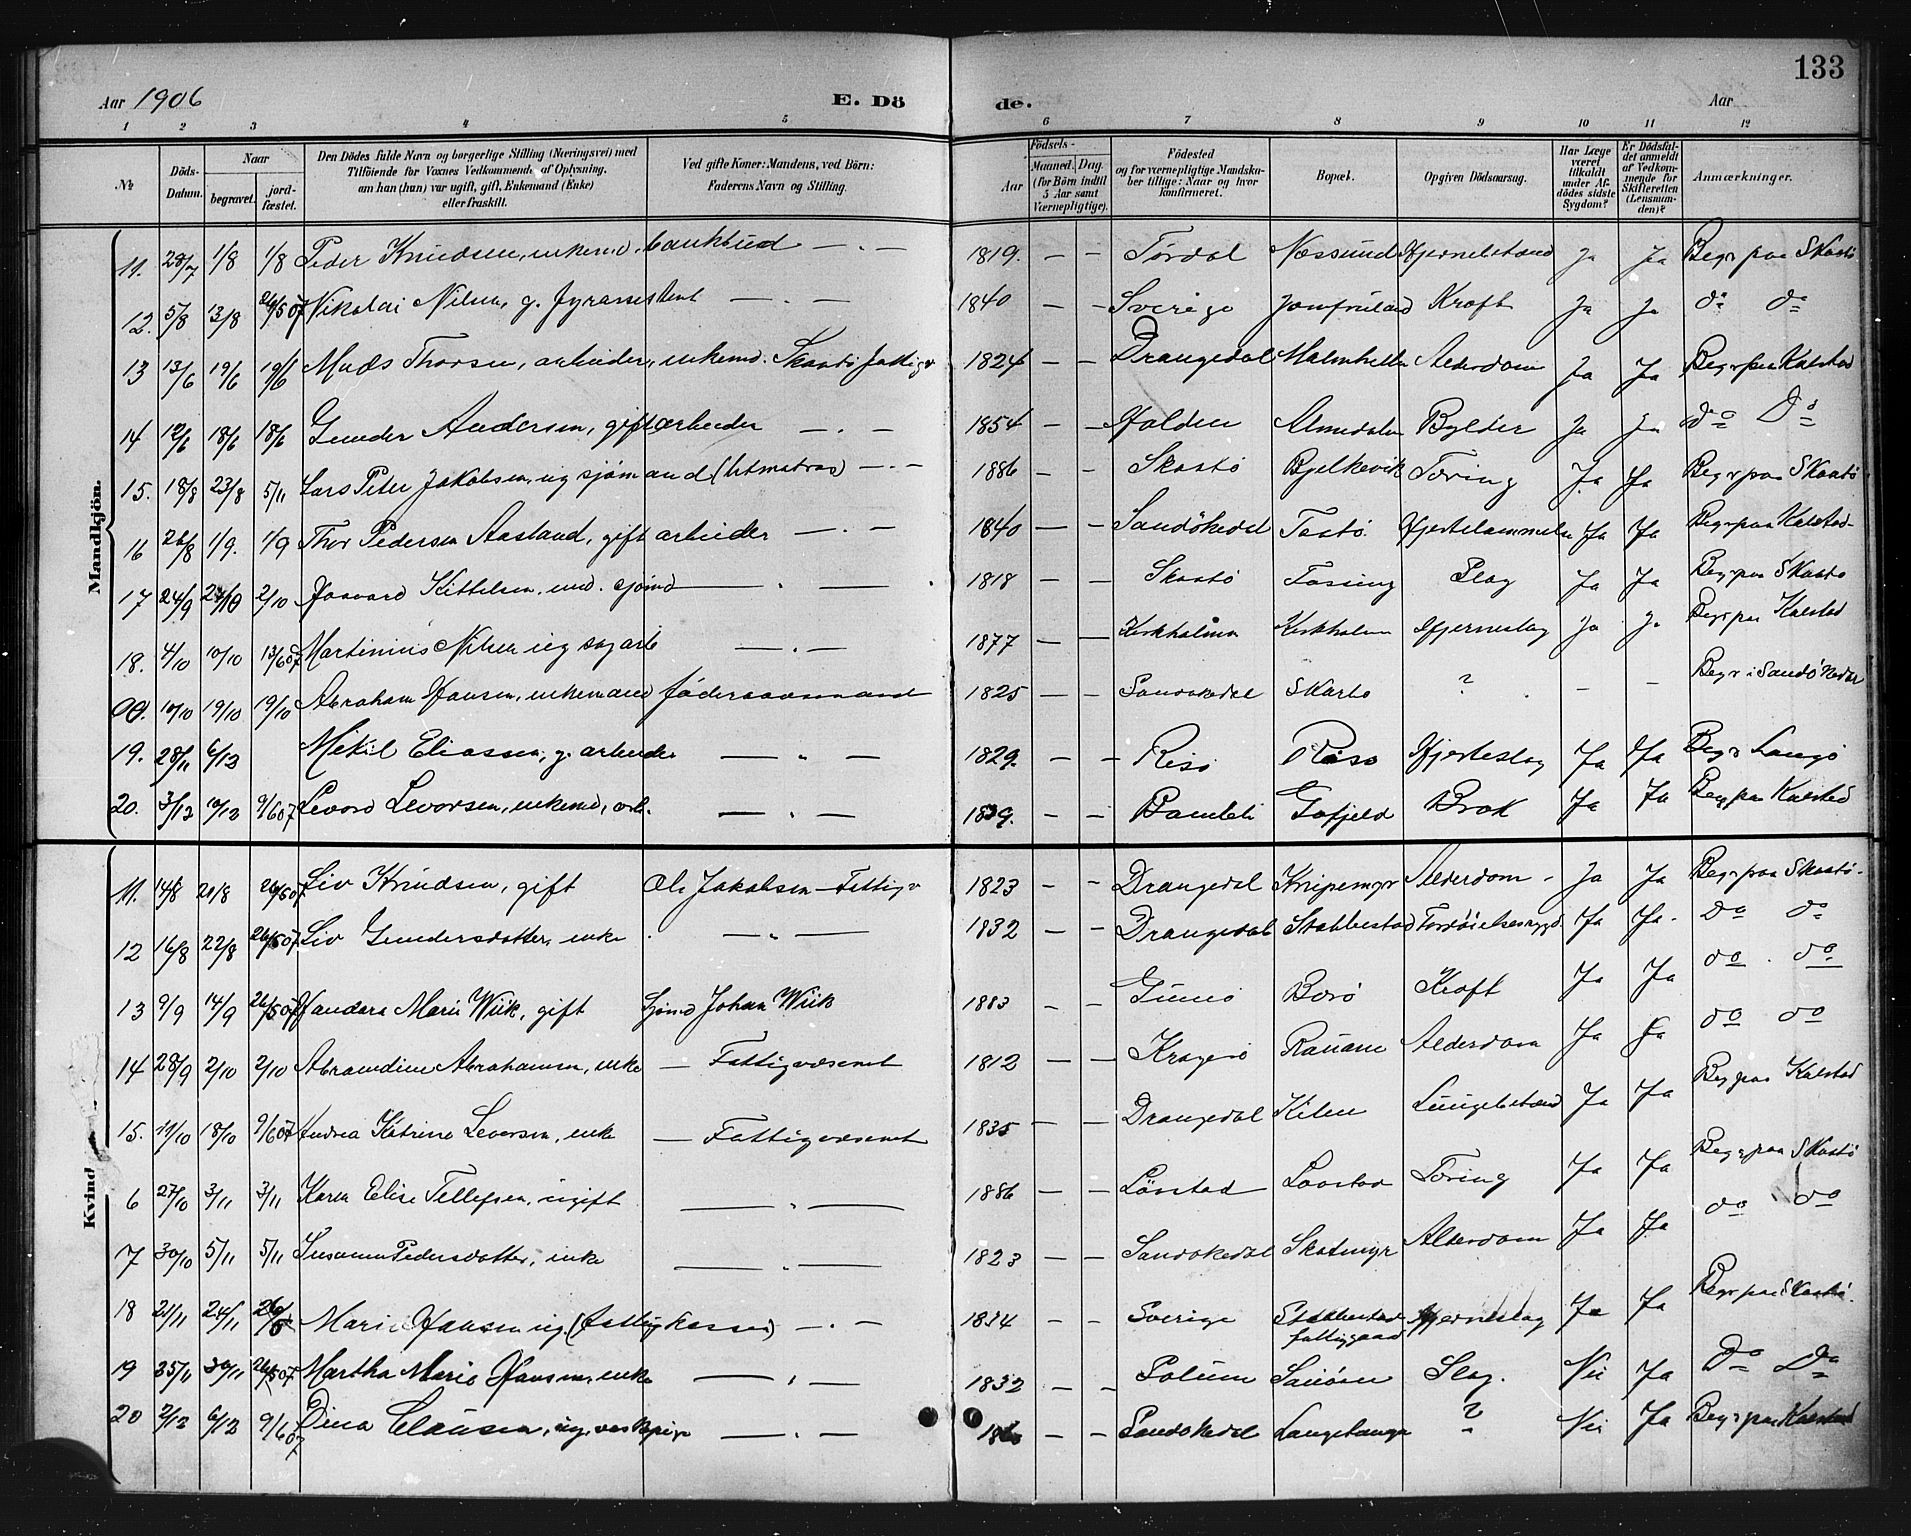 133
Aar 1906 E. Dö de. Aar
1 2 3 4 5 6 7 8 9 10 11 12
№ Döds-Datum. Naar begravet. jord-fæstet. Den Dödes fulde Navn og borgerlige Stilling (Næringsvei) med Tilföiende for Voxnes Vedkommende af Oplysning, om han (hun) var ugift, gift, Enkemand (Enke) eller fraskilt. Ved gifte Koner: Mandens, ved Börn: Faderens Navn og Stilling. Födsels- Aar Maaned. Dag. (for Börn indtil 5 Aar samt Værnepligtige). Födested og for værnepligtige Mandskaber tillige: Naar og hvor konfirmeret. Bopæl. Opgiven Dödsaarsag. Har Læge været tilkaldt under Afdödes sidste Sygdom? Er Dödsfaldet anmeldt af Vedkommende for Skifteretten (Lensmanden)? Anmærkninger.
Mandkjön.
11. 28/7 1/8 1/8 Peder Knudsen, enkemd. bankbud — . — 1819. — — Tördal Næssund Hjernebetænd Ja Ja Begr paa Skaatö
12. 5/8 13/8 26/5 07 Nikolai Nilsen, g. fyrassistent — . — 1840 — — Sverige Jomfruland Kræft Ja Ja do do
13 13/6 19/6 19/6 Mads Thorsen, arbeider, enkemd. Skaatö fattigv 1824 — — Drangedal Alderdom Ja Ja Begr paa Kalstad
14 12/6 18/6 18/6 Gunder Andersen, gift arbeider — . — 1854 — — Halden Almedalen Bylder Ja Ja do Do
15. 18/8 23/8 5/11 Lars Peter Jakobsen, ug sjömand (letmatros) — . — 1886 — — Skaatö Bjelkevik Tæring Ja Ja Begr paa Skaatö
16 26/8 1/9. 1/9 Thor Pedersen Aasland, gift arbeider — . — 1840 — — Sandökedal Taatö Hjertelammelse Ja Ja Begr paa Kalstad
17 24/9 2/10 Haavard Kittelsen, sjömd — . — 1818 — — Skaatö Slag Ja Ja Begr paa Skaatö
18. 4/10 10/10 13/6 07 Martinius Nilsen ug sagarb — . — 1877 — — Kirkholmen Kirkholmen Hjerneslag Ja Ja Begr paa Kalstad
00. 10/10 19/10 19/10 Abraham Hansen, enkemand föderaadsmand 1825 — — Sandökedal Skaatö ? — — Begr i Sandökedal
19. 28/11 6/12 Mikil Eliassen, g. arbeider — „ — 1829. — — Risö Risö Hjerteslag Ja Ja Begr Langö
20. 3/12 10/12 9/6 07 Levord Levorsen, enkemd, arb. — „ — 1839. — — Bamble Gofjeld Brok Ja Ja Begr paa Kalstad
Kvind
11. 14/8 21/8 26/5 07 Liv Knudsen, gift Ole Jakobsen — Fattigv 1823 — — Drangedal Knipemyr Alderdom — Ja Ja Begr paa Skaatö.
12 16/8 22/8 26/5 07 Liv Gundersdatter, enke — „ — 1832 — — Drangedal Stabbestad Ja Ja. Do do
13 9/9 14/9 26/5 07 Marie Wiik, gift Sjömd Johan Wiik 1883 — — Gumö Berö Kræft Ja Ja do . do
14 28/9 2/10 2/10 Abramdine Abrahamsen, enke — Fattigvæsenet 1812 — — Kragerö Alderdom Ja Ja do do
15. 11/10 18/10 9/6 07 Andrea Katrine Levorsen, enke — Fattigvæsenet 1835 — — Drangedal Kilen Lungebetænd Ja Ja Beg paa Kalstad
6 27/10 3/11 3/11 Karen Elise Tellefsen, ugift — „ — 1886 — — Lövstad Lövstad Tæring Ja Ja Begr paa Skaatö
7 30/10 5/11 5/11 Susanna Pedersdatter, enke — „ — 1823 — — Sandökedal Skatmyr Alderdom Ja Ja do do
18 21/11 24/11 26/5 Marie Hansen ug. (fattigkassen) — . — 1834 — — Sverige Stabbestad fattiggaard Hjerneslag Ja Ja Begr paa Skaatö.
19 25/11 30/11 26/5 07 Martha Marie Hansen, enke — „ — 1832 — — Solum Slag. Nei Ja Do Do
20 2/12 6/12 9/6 07 Dina Clausen, ug, — . — — — Sandökedal Langetangen ? Nei Ja Begr paa Kalstad